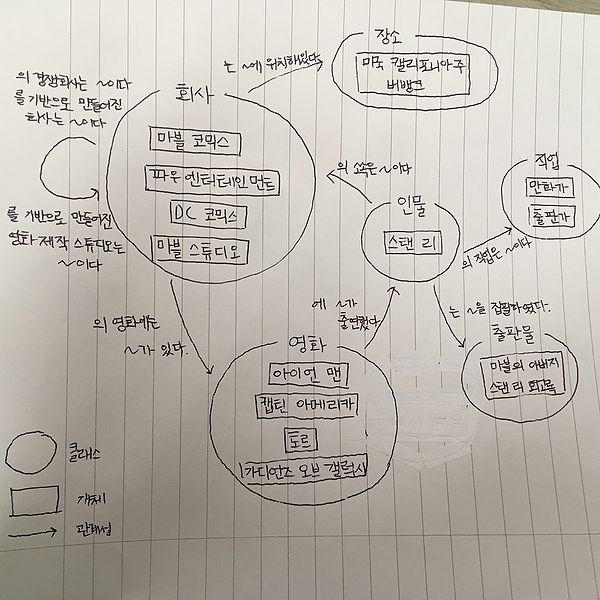 장소
미국 캘리포니아주
버뱅크
는 ~에 위치해있다
의 경쟁회사는 ~이다
를 기반으로 만들어진
회사는 ~이다
회사
마블 코믹스
파우 엔터테인먼트
DC 코믹스
마블 스튜디오
를 기반으로 만들어진
영화 제작 스튜디오는
~이다
의 소속은 ~이다
인물
스탠 리
직업
만화가
출판가
의 직업은 ~이다
의 영화에는
~가 있다.
에 ~가
출연했다
는 ~을 집필하였다.
출판물
마블의 아버지
스탠 리 회고록
영화
아이언 맨
캡틴 아메리카
토르
가디언즈 오브 갤럭시
클래스
객체
관계성